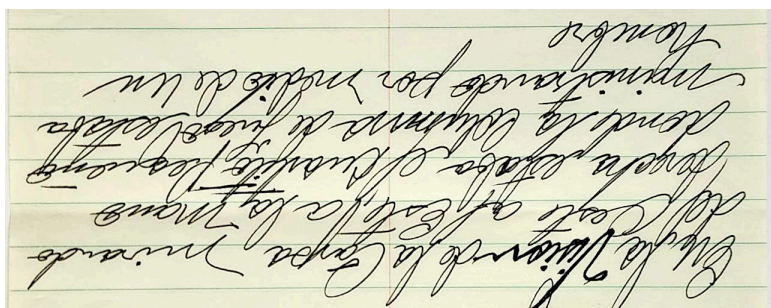 En la Vision de la Carpa mirando
del Oeste al Este, a la mano
derecha estaba el Cuartito pequeño
donde la Columna de fuego estaba
ministrando por medio de un
hombre